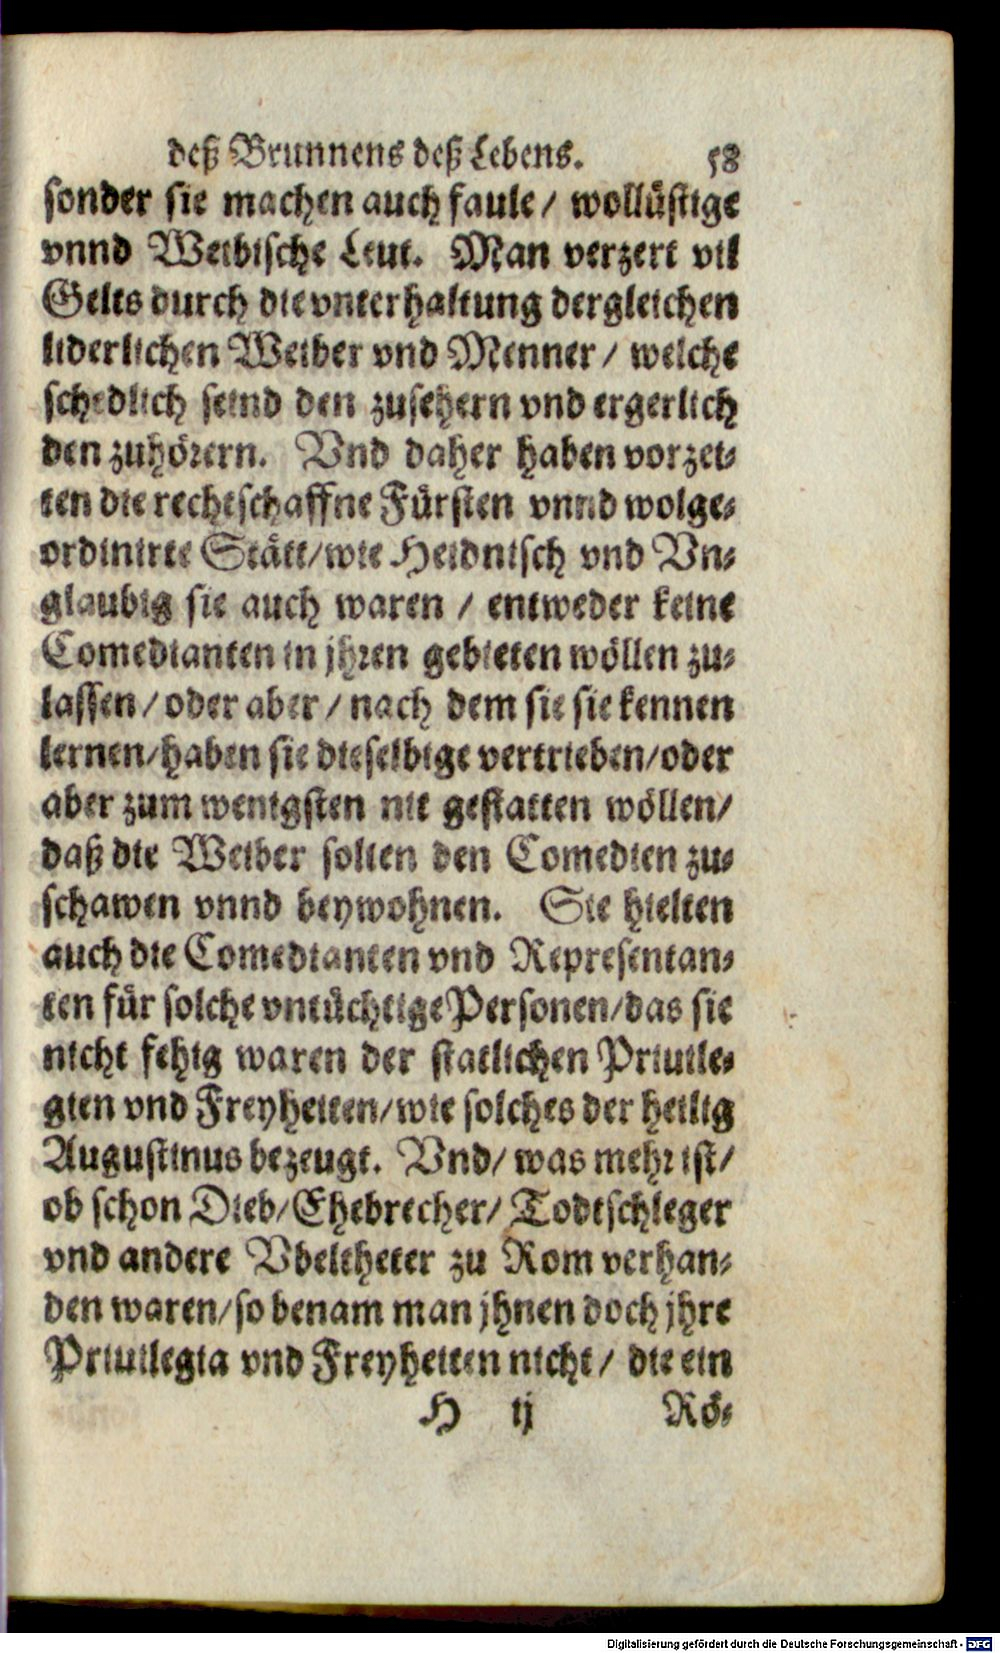 deß Brunnens deß Lebens. 58
sonder sie machen auch faule / wollüstige
vnnd Weibische Leut. Man verzert vil
Gelts durch die vnterhaltung dergleichen
liderlichen Weiber vnd Menner / welche
schedlich seind den zusehern vnd ergerlich
den zuhörern. Vnd daher haben vorzei⸗
ten die rechtschaffne Fürsten vnnd wolge⸗
ordinirte Stätt / wie Heidnisch vnd Vn⸗
glaubig sie auch waren / entweder keine
Comedianten in jhren gebieten wöllen zu⸗
lassen / oder aber / nach dem sie sie kennen
lernen / haben sie dieselbige vertrieben / oder
aber zum wenigsten nit gestatten wöllen /
daß die Weiber solten den Comedien zu⸗
schawen vnnd beywohnen. Sie hielten
auch die Comedianten vnd Representan⸗
ten für solche vntüchtige Personen / das sie
nicht fehig waren der statlichen Priuile⸗
gien vnd Freyheiten / wie solches der heilig
Augustinus bezeugt. Vnd / was mehr ist /
ob schon Dieb / Ehebrecher / Todtschleger
vnd andere Vbeltheter zu Rom verhan⸗
den waren / so benam man jhnen doch jhre
Priuilegia vnd Freyheiten nicht / die ein
H ij Rö⸗
Digitalisierung gefördert durch die Deutsche Forschungsgemeinschaft - DFG